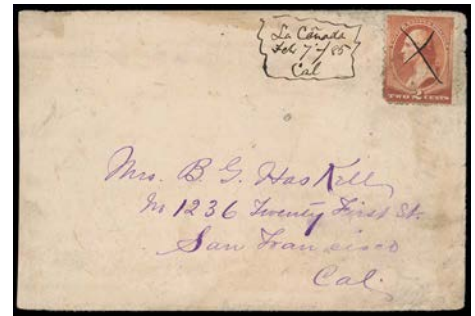 La Cañada
Feb 7th/85
Cal
TWO 2 CENTS
Mrs. B. G. Haskell
No 1236 Twenty First St.
San Francisco
Cal.